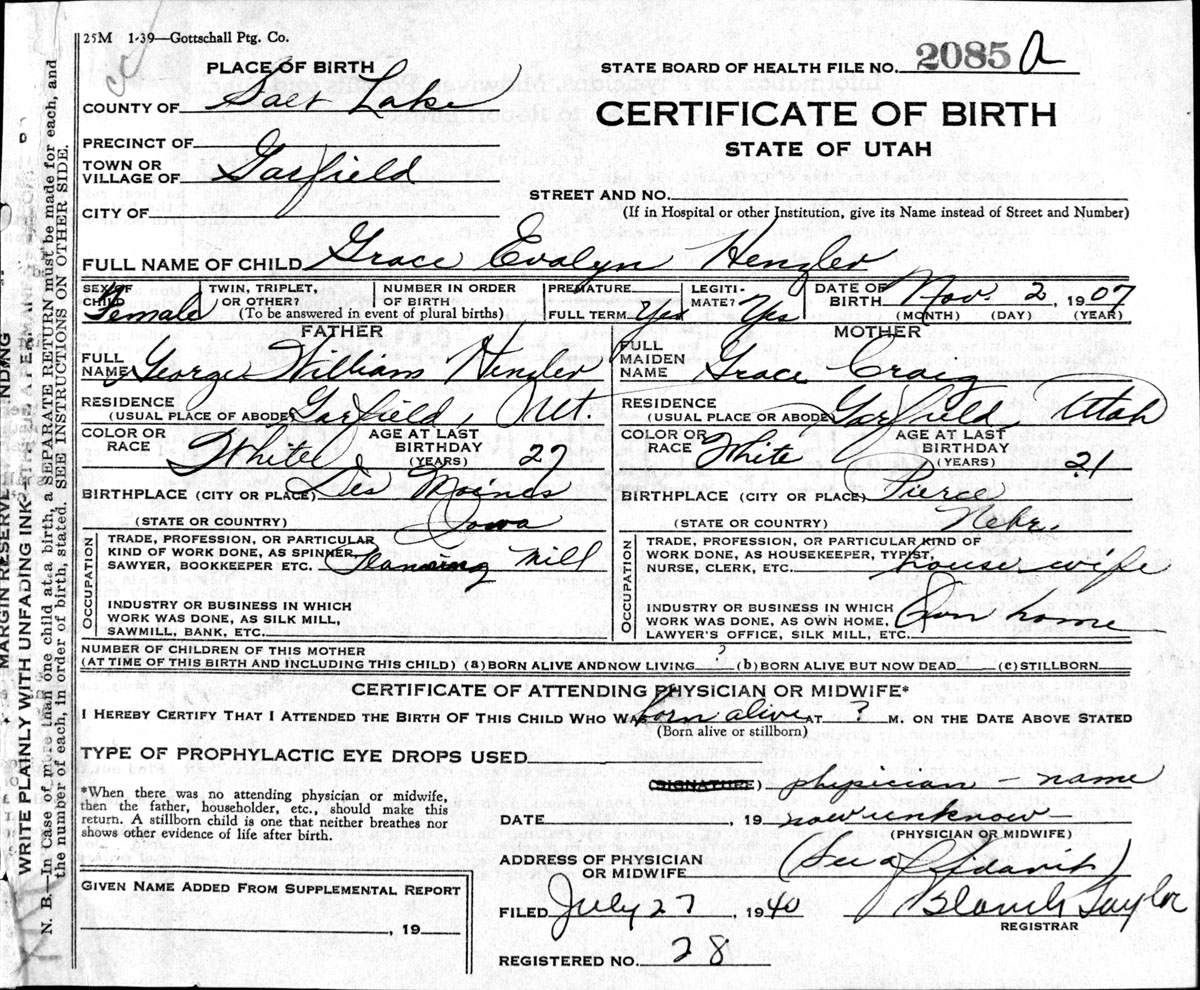 25M 1-39—Gottschall Ptg. Co.
PLACE OF BIRTH
STATE BOARD OF HEALTH FILE NO. 2085 a
COUNTY OF Salt Lake
CERTIFICATE OF BIRTH
STATE OF UTAH
PRECINCT OF
TOWN OR VILLAGE OF Garfield
STREET AND NO.
CITY OF
(If in Hospital or other Institution, give its Name instead of Street and Number)
FULL NAME OF CHILD Grace Evalyn Henzler
SEX OF CHILD Female
TWIN, TRIPLET, OR OTHER?
(To be answered in event of plural births)
NUMBER IN ORDER OF BIRTH
PREMATURE
FULL TERM Yes
LEGITIMATE? Yes
DATE OF BIRTH Nov. 2, 1907
(MONTH) (DAY) (YEAR)
FATHER
FULL NAME George William Henzler
RESIDENCE
(USUAL PLACE OF ABODE) Garfield, Ut.
COLOR OR RACE White
AGE AT LAST BIRTHDAY (YEARS) 27
BIRTHPLACE (CITY OR PLACE) Des Moines
(STATE OR COUNTRY) Iowa
OCCUPATION
TRADE, PROFESSION, OR PARTICULAR
KIND OF WORK DONE, AS SPINNER,
SAWYER, BOOKKEEPER ETC. Planing Mill
INDUSTRY OR BUSINESS IN WHICH
WORK WAS DONE, AS SILK MILL,
SAWMILL, BANK, ETC.
MOTHER
FULL MAIDEN NAME Grace Craig
RESIDENCE
(USUAL PLACE OR ABODE) Garfield, Utah
COLOR OR RACE White
AGE AT LAST BIRTHDAY (YEARS) 21
BIRTHPLACE (CITY OR PLACE) Pierce
(STATE OR COUNTRY) Nebr.
OCCUPATION
TRADE, PROFESSION, OR PARTICULAR KIND OF
WORK DONE, AS HOUSEKEEPER, TYPIST,
NURSE, CLERK, ETC. housewife
INDUSTRY OR BUSINESS IN WHICH
WORK WAS DONE, AS OWN HOME,
LAWYER'S OFFICE, SILK MILL, ETC. Own home
NUMBER OF CHILDREN OF THIS MOTHER
(AT TIME OF THIS BIRTH AND INCLUDING THIS CHILD) (a) BORN ALIVE AND NOW LIVING ? (b) BORN ALIVE BUT NOW DEAD (c) STILLBORN
CERTIFICATE OF ATTENDING PHYSICIAN OR MIDWIFE*
I HEREBY CERTIFY THAT I ATTENDED THE BIRTH OF THIS CHILD WHO WAS born alive AT ? M. ON THE DATE ABOVE STATED
(Born alive or stillborn)
TYPE OF PROPHYLACTIC EYE DROPS USED
*When there was no attending physician or midwife,
then the father, householder, etc., should make this
return. A stillborn child is one that neither breathes nor
shows other evidence of life after birth.
(SIGNATURE) physician - name
DATE , 19 now unknow-
(PHYSICIAN OR MIDWIFE)
ADDRESS OF PHYSICIAN OR MIDWIFE (See affidavit)
GIVEN NAME ADDED FROM SUPPLEMENTAL REPORT
, 19
FILED July 27, 1940 Blanch Taylor
REGISTRAR
REGISTERED NO. 28
WRITE PLAINLY WITH UNFADING INK
N. B.—In Case of more than one child at a birth, a SEPARATE RETURN must be made for each, and
the number of each, in order of birth, stated. SEE INSTRUCTIONS ON OTHER SIDE.